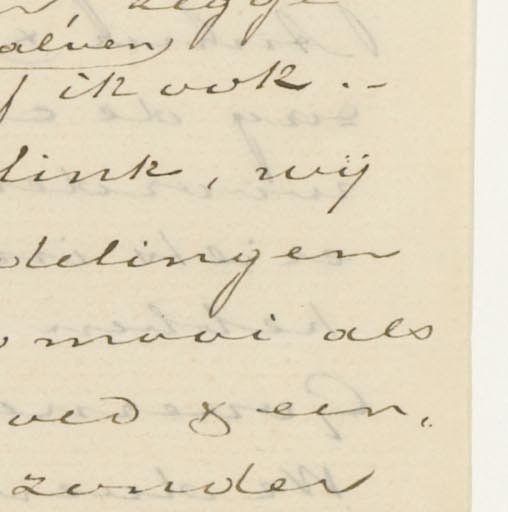 zegge
alven
ik ook .-
link, wij
delingen
mooi als
oed & een,
zonder